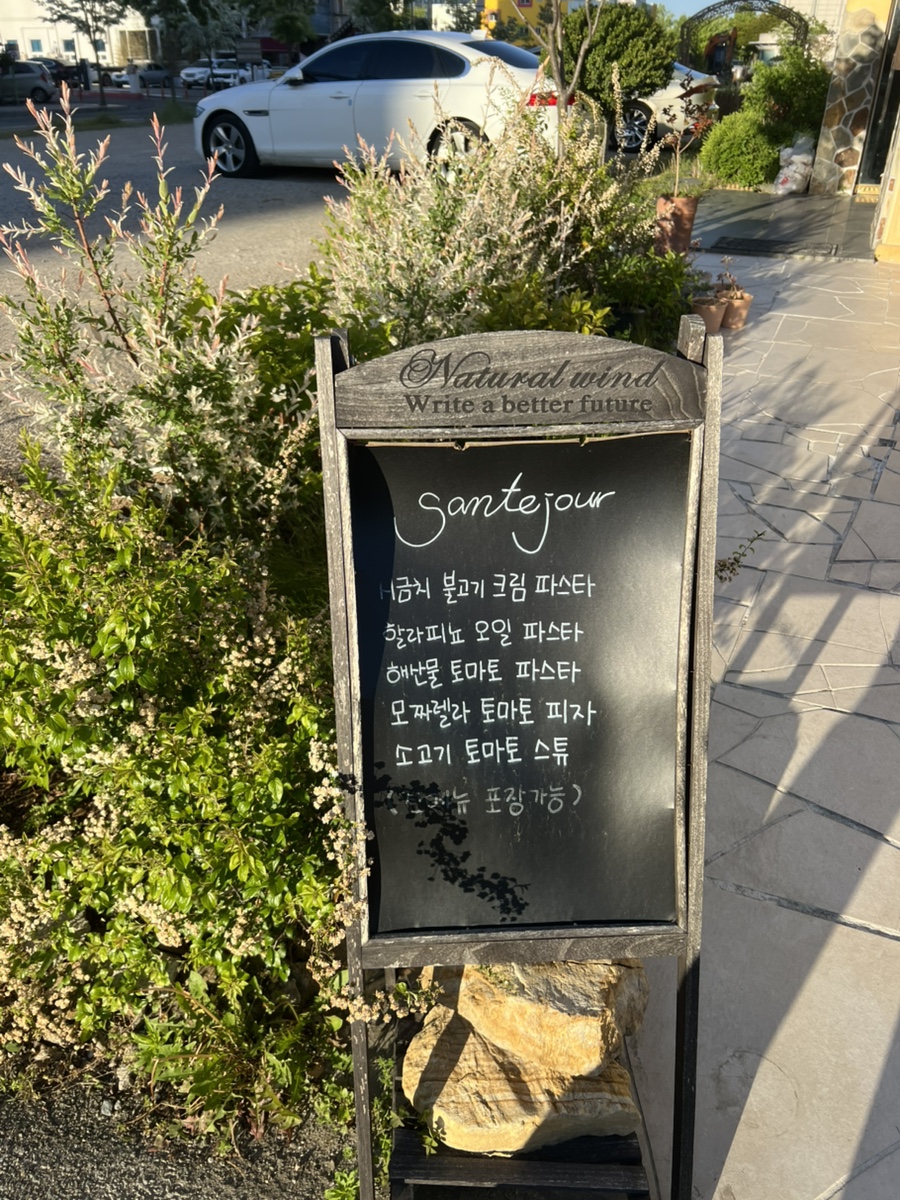 Natural wind
Write a better future
Santejour
시금치 불고기 크림 파스타
할라피뇨 오일 파스타
해산물 토마토 파스타
모짜렐라 토마토 피자
소고기 토마토 스튜
포장가능)